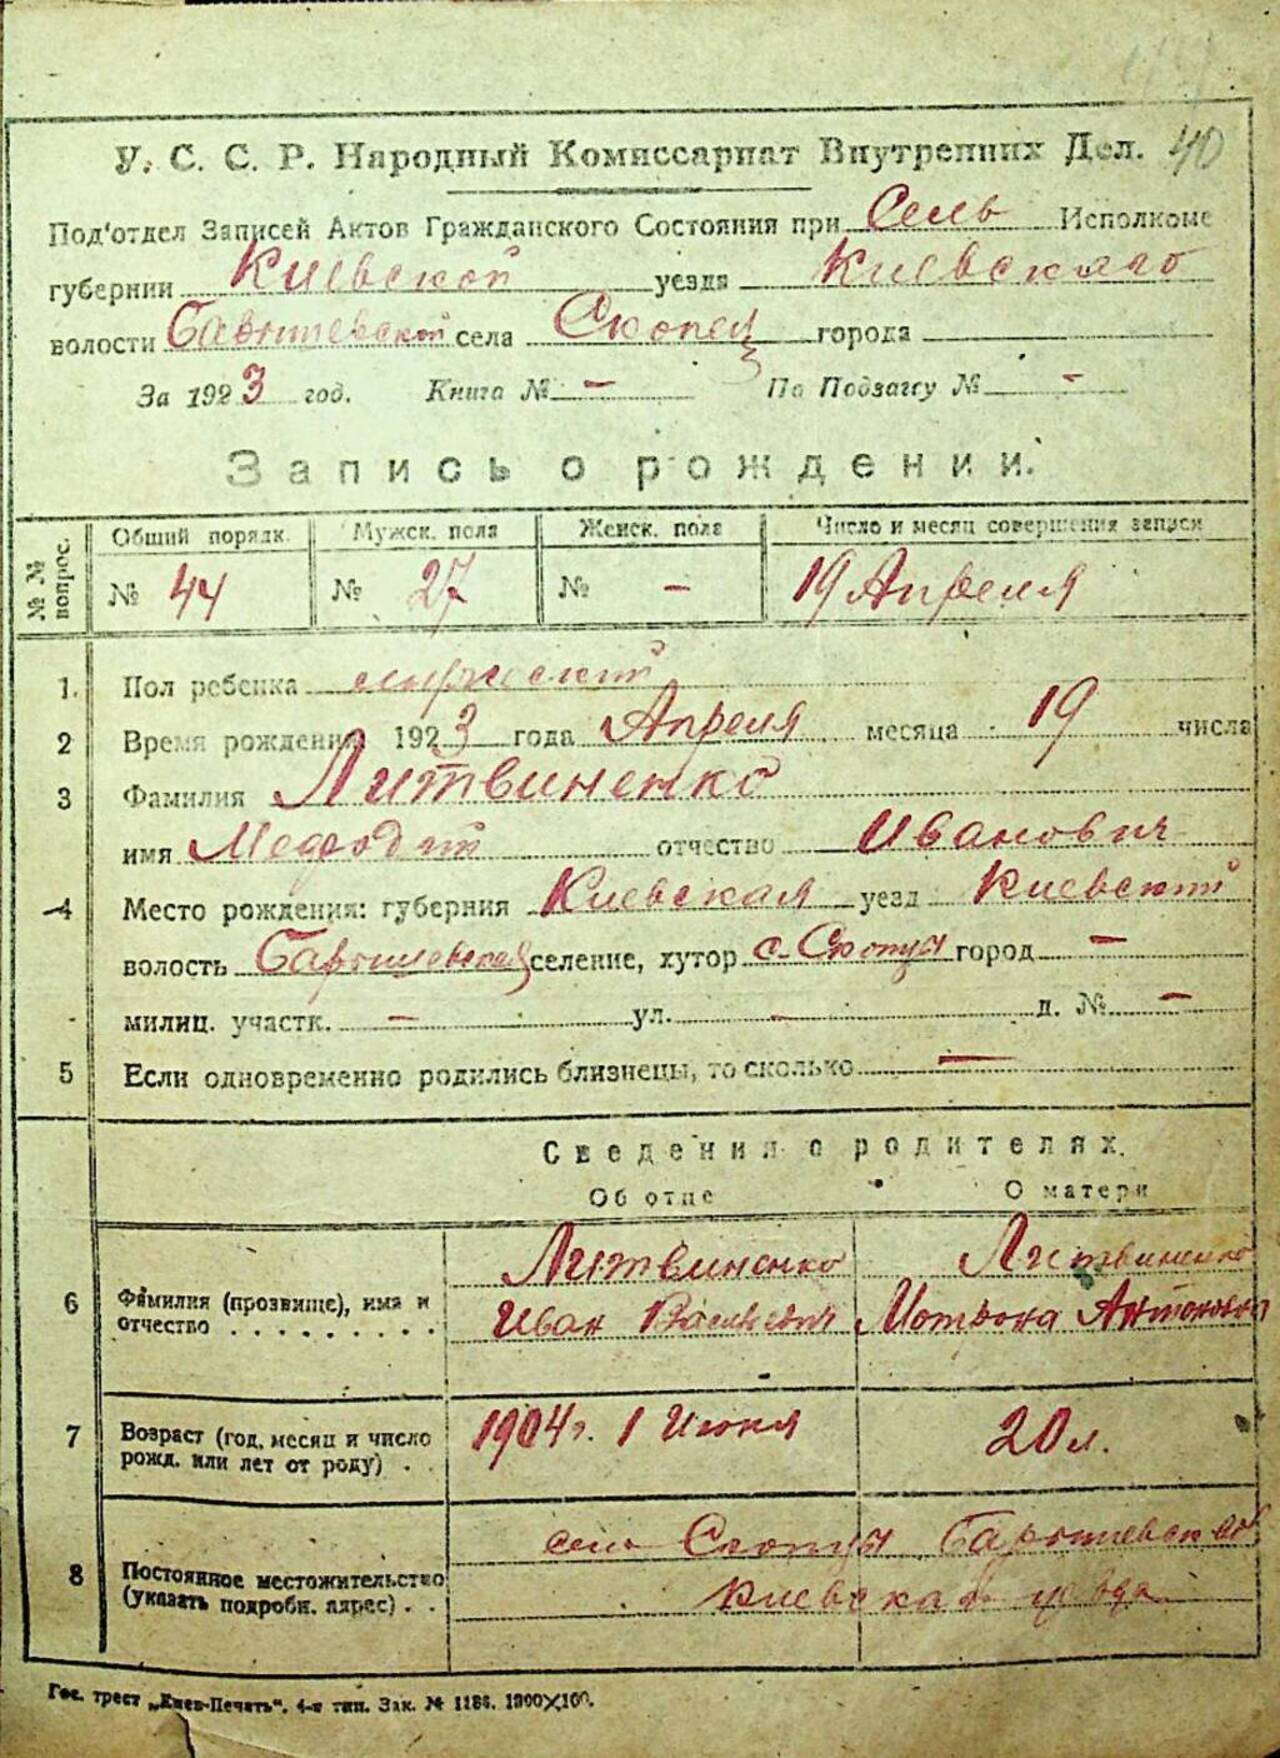 40
У. С. С. Р. Народный Комиссариат Внутренних Дел.
Под'отдел Записей Актов Гражданского Состояния при Сель Исполкоме
губернии Киевской уезда Киевскаго
волости Барышевской села Скопец города
За 1923 год. Книга № — По Подзагсу № —
Запись о рождении.
№№ вопрос. Общий порядк. Мужск. пола Женск. пола Число и месяц совершения записи
№ 44 № 27 № — 19 Апреля
1. Пол ребенка мужеский
2 Время рождения 1923 года Апреля месяца 19 числа
3 Фамилия Литвиненко
имя Мефодий отчество Иванович
4 Место рождения: губерния Киевская уезд Киевский
волость Барышевская селение, хутор с. Скопци город —
милиц. участк. — ул. — д. № —
5 Если одновременно родились близнецы, то сколько —
Сведения о родителях.
Об отце О матери
Литвиненко Литвиненко
6 Фамилия (прозвище), имя и отчество Иван Васильевич Мотрона Антоновна
7 Возраст (год, месяц и число рожд. или лет от роду) 1904 г. 1 Июня 20 л.
село Скопци Барышевской
8 Постоянное местожительство (указать подробн. адрес) Киевская уезда
Гос. трест „Киев-Печать“. 4-я тип. Зак. № 1186. 1900×100.